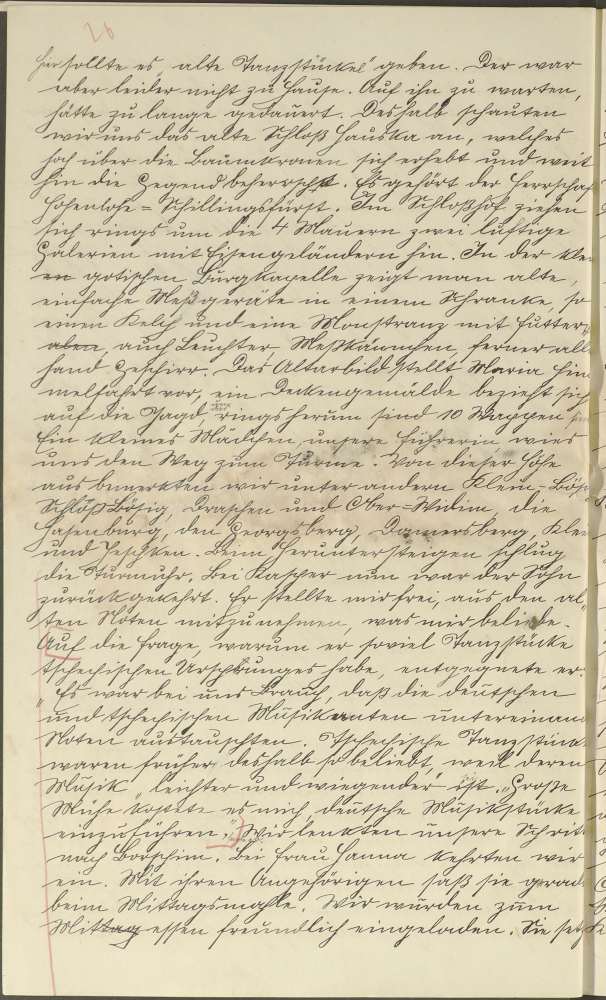 26
hier sollte es "alte Tanzstückel" geben. Der war
aber leider nicht zu Hause. Auf ihn zu warten,
hätte zu lange gedauert. Deshalb schauten
wir uns das alte Schloß Hauska an, welches
hoch über die Baumkronen sich erhebt und weit
hin die Gegend beherrscht. Es gehört der Herrschaf
Hohenlohe=Schillingsfürst. Im Schloßhof ziehen
sich rings um die 4 Mauern zwei luftige
Galerien mit Eisengeländern hin. In der klei
en gotischen Burgkapelle zeigt man alte,
einfache Meßgeräte in einem Schranke, so
einen Kelch und eine Monstranz mit Futter,
auch Leuchter, Meßkännchen, ferner aller
hand Geschirr. Das Altarbild stellt Maria Him
melfahrt vor, ein Deckengemälde bezieht sich
auf die Jagd rings herum sind 10 Wappen
Ein kleines Mädchen, unsere Führerin wies
uns den Weg zum Turme. Von dieser Höhe
aus bemerkten wir unter andern Klein-Bösi
Schloß Bösig, Draschen und Ober-Widim, die
Hasenburg, den Georgsberg, Klei
und Jeschken. Beim Heruntersteigen schlug
die Turmuhr. Bei Kascher nun war der Sohn
zurückgekehrt. Er stellte mir frei, aus den al
ten Noten mitzunehmen, was mir beliebe.
Auf die Frage, warum er soviel Tanzstücke
tschechischen Ursprunges habe, entgegnete er:
"Es war bei uns Brauch, daß die deutschen
und tschechischen Musikanten untereinand
Noten austauschten. Tschechische Tanzstück
waren früher deshalb so beliebt, weil deren
Musik "leichter und wiegender" ist. "Große
Mühe kostete es mich, deutsche Musikstücke
einzuführen." Wir lenkten unsere Schrit
nach Borschim. Bei Frau Hanna kehrten wir
ein. Mit ihren Angehörigen saß sie gerade
beim Mittagsmahle. Wir wurden zum
Mittagessen freundlich eingeladen. Sie setz